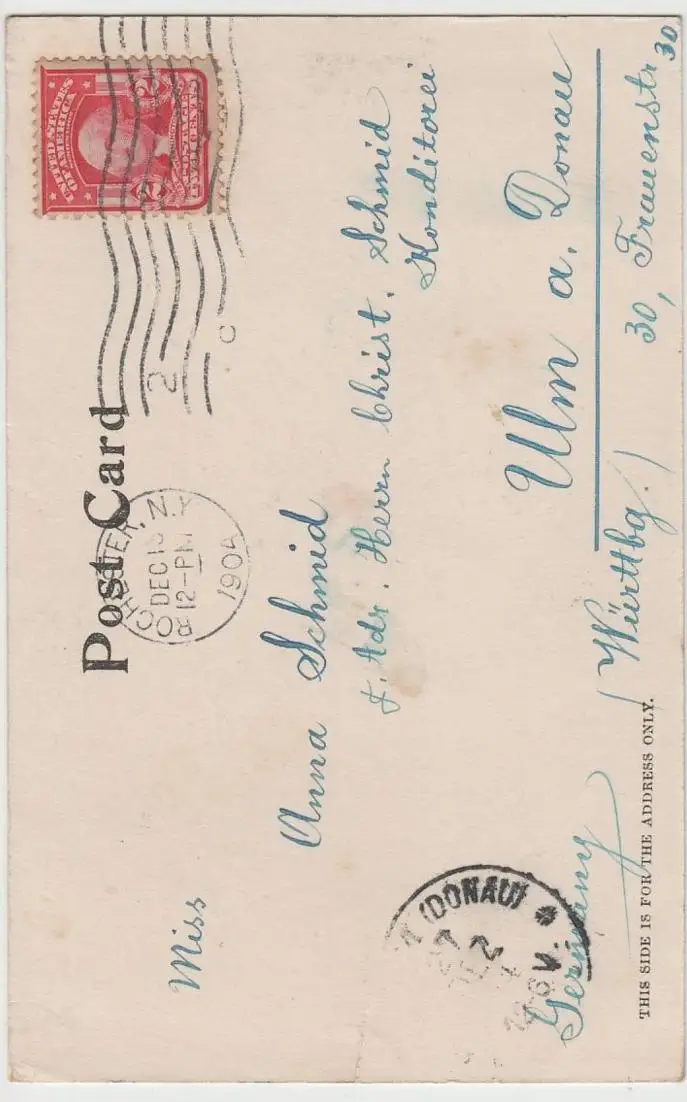 Post Card
UNITED STATES
OF AMERICA
POSTAGE
TWO CENTS
2 2
DEC
12-PM
1904
N.Y.
2
C
Miss
Anna Schmid
p. Adr. Herrn Christ. Schmid
Konditorei
Ulm a. Donau
30, Frauenstr. 30
(Württbg.)
Germany
(DONAU)
THIS SIDE IS FOR THE ADDRESS ONLY.